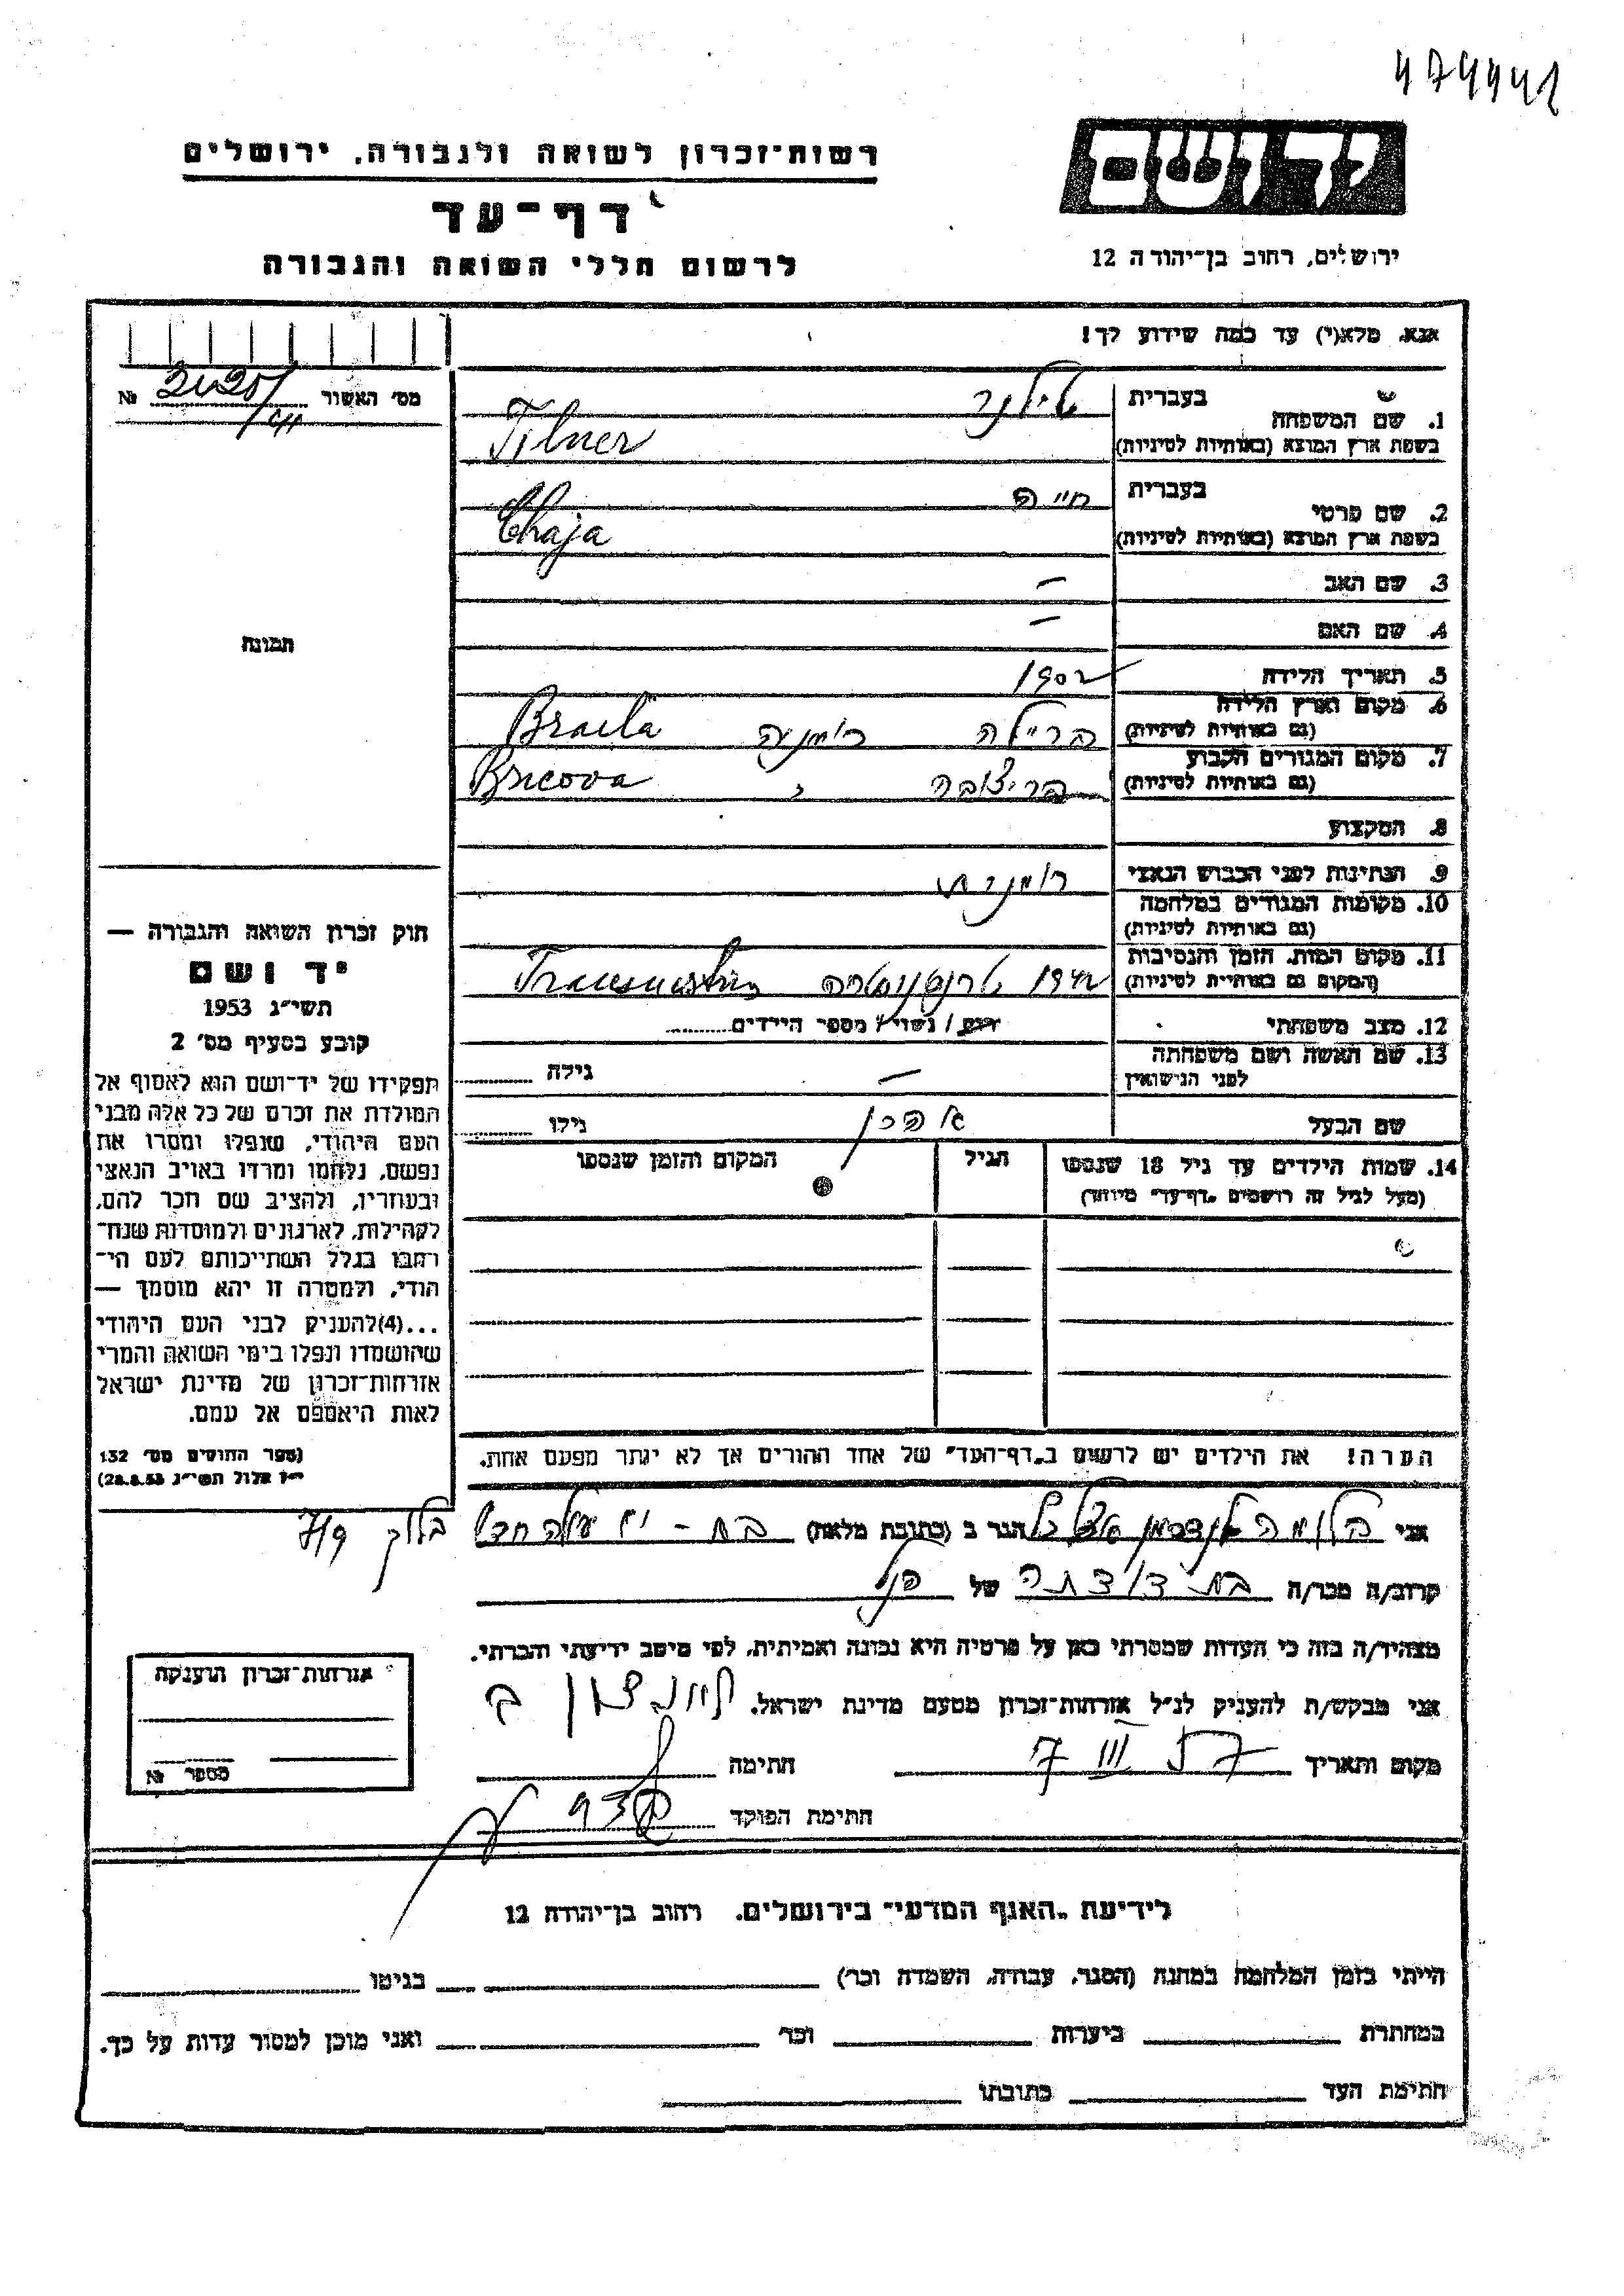 474442
יד ושם
רשות־זכרון לשואה ולגבורה, ירושלים
דף־עד
לרשום חללי השואה והגבורה
ירושלים, רחוב בן־יהודה 12
אנא, מלא(י) עד כמה שידוע לך!
מס' האשור №
1. שם המשפחה בעברית טילנר
בשפת ארץ המוצא (באותיות לטיניות) Tilner
2. שם פרטי בעברית חייה
בשפת ארץ המוצא (באותיות לטיניות) Chaja
3. שם האב —
4. שם האם —
תמונה
5. תאריך הלידה 1902
6. מקום וארץ הלידה (גם באותיות לטיניות) ברײלה רומניה Braila
7. מקום המגורים הקבוע (גם באותיות לטיניות) בריצ'ובה Bricova
8. המקצוע
9. הנתינות לפני הכבוש הנאצי רומנית
10. מקומות המגורים במלחמה (גם באותיות לטיניות)
11. מקום המות, הזמן והנסיבות (המקום גם באותיות לטיניות) 1942
12. מצב משפחתי רווק / נשוי / מספר הילדים
13. שם האשה ושם משפחתה לפני הנישואין — גילה
שם הבעל אהרן גילו
14. שמות הילדים עד גיל 18 שנספו (מעל לגיל זה רושמים „דף־עד" מיוחד) הגיל המקום והזמן שנספו
חוק זכרון השואה והגבורה —
יד ושם
תשי"ג 1953
קובע בסעיף מס' 2
תפקידו של יד־ושם הוא לאסוף אל
המולדת את זכרם של כל אלה מבני
העם היהודי, שנפלו ומסרו את
נפשם, נלחמו ומרדו באויב הנאצי
ובעוזריו, ולהציב שם וזכר להם,
לקהילות, לארגונים ולמוסדות שנח־
רבו בגלל השתייכותם לעם הי־
הודי, ולמטרה זו יהא מוסמך —
...(4)להעניק לבני העם היהודי
שהושמדו ונפלו בימי השואה והמרי
אזרחות־זכרון של מדינת ישראל
לאות היאספם אל עמם.
(ספר החוקים מס' 132
י"ז אלול תשי"ג 28.8.53)
הערה! את הילדים יש לרשום ב„דף־העד" של אחד ההורים אך לא יותר מפעם אחת.
אני בלומה הגר ב (כתובת מלאה) בת־ים עולה חדש בלוק 7/9
קרוב/ה מכר/ה בת דודתה של הנ"ל
מצהיר/ה בזה כי העדות שמסרתי כאן על פרטיה היא נכונה ואמיתית, לפי מיטב ידיעתי והכרתי.
אני מבקש/ת להעניק לנ"ל אזרחות־זכרון מטעם מדינת ישראל.
מקום ותאריך 7 III 57 חתימה
חתימת הפוקד
אזרחות־זכרון הוענקה
מספר №
לידיעת „האגף המדעי" בירושלים, רחוב בן־יהודה 12
הייתי בזמן המלחמה במחנה (הסגר, עבודה, השמדה וכו') בגיטו
במחתרת ביערות וכו' ואני מוכן למסור עדות על כך.
חתימת העד כתובתו